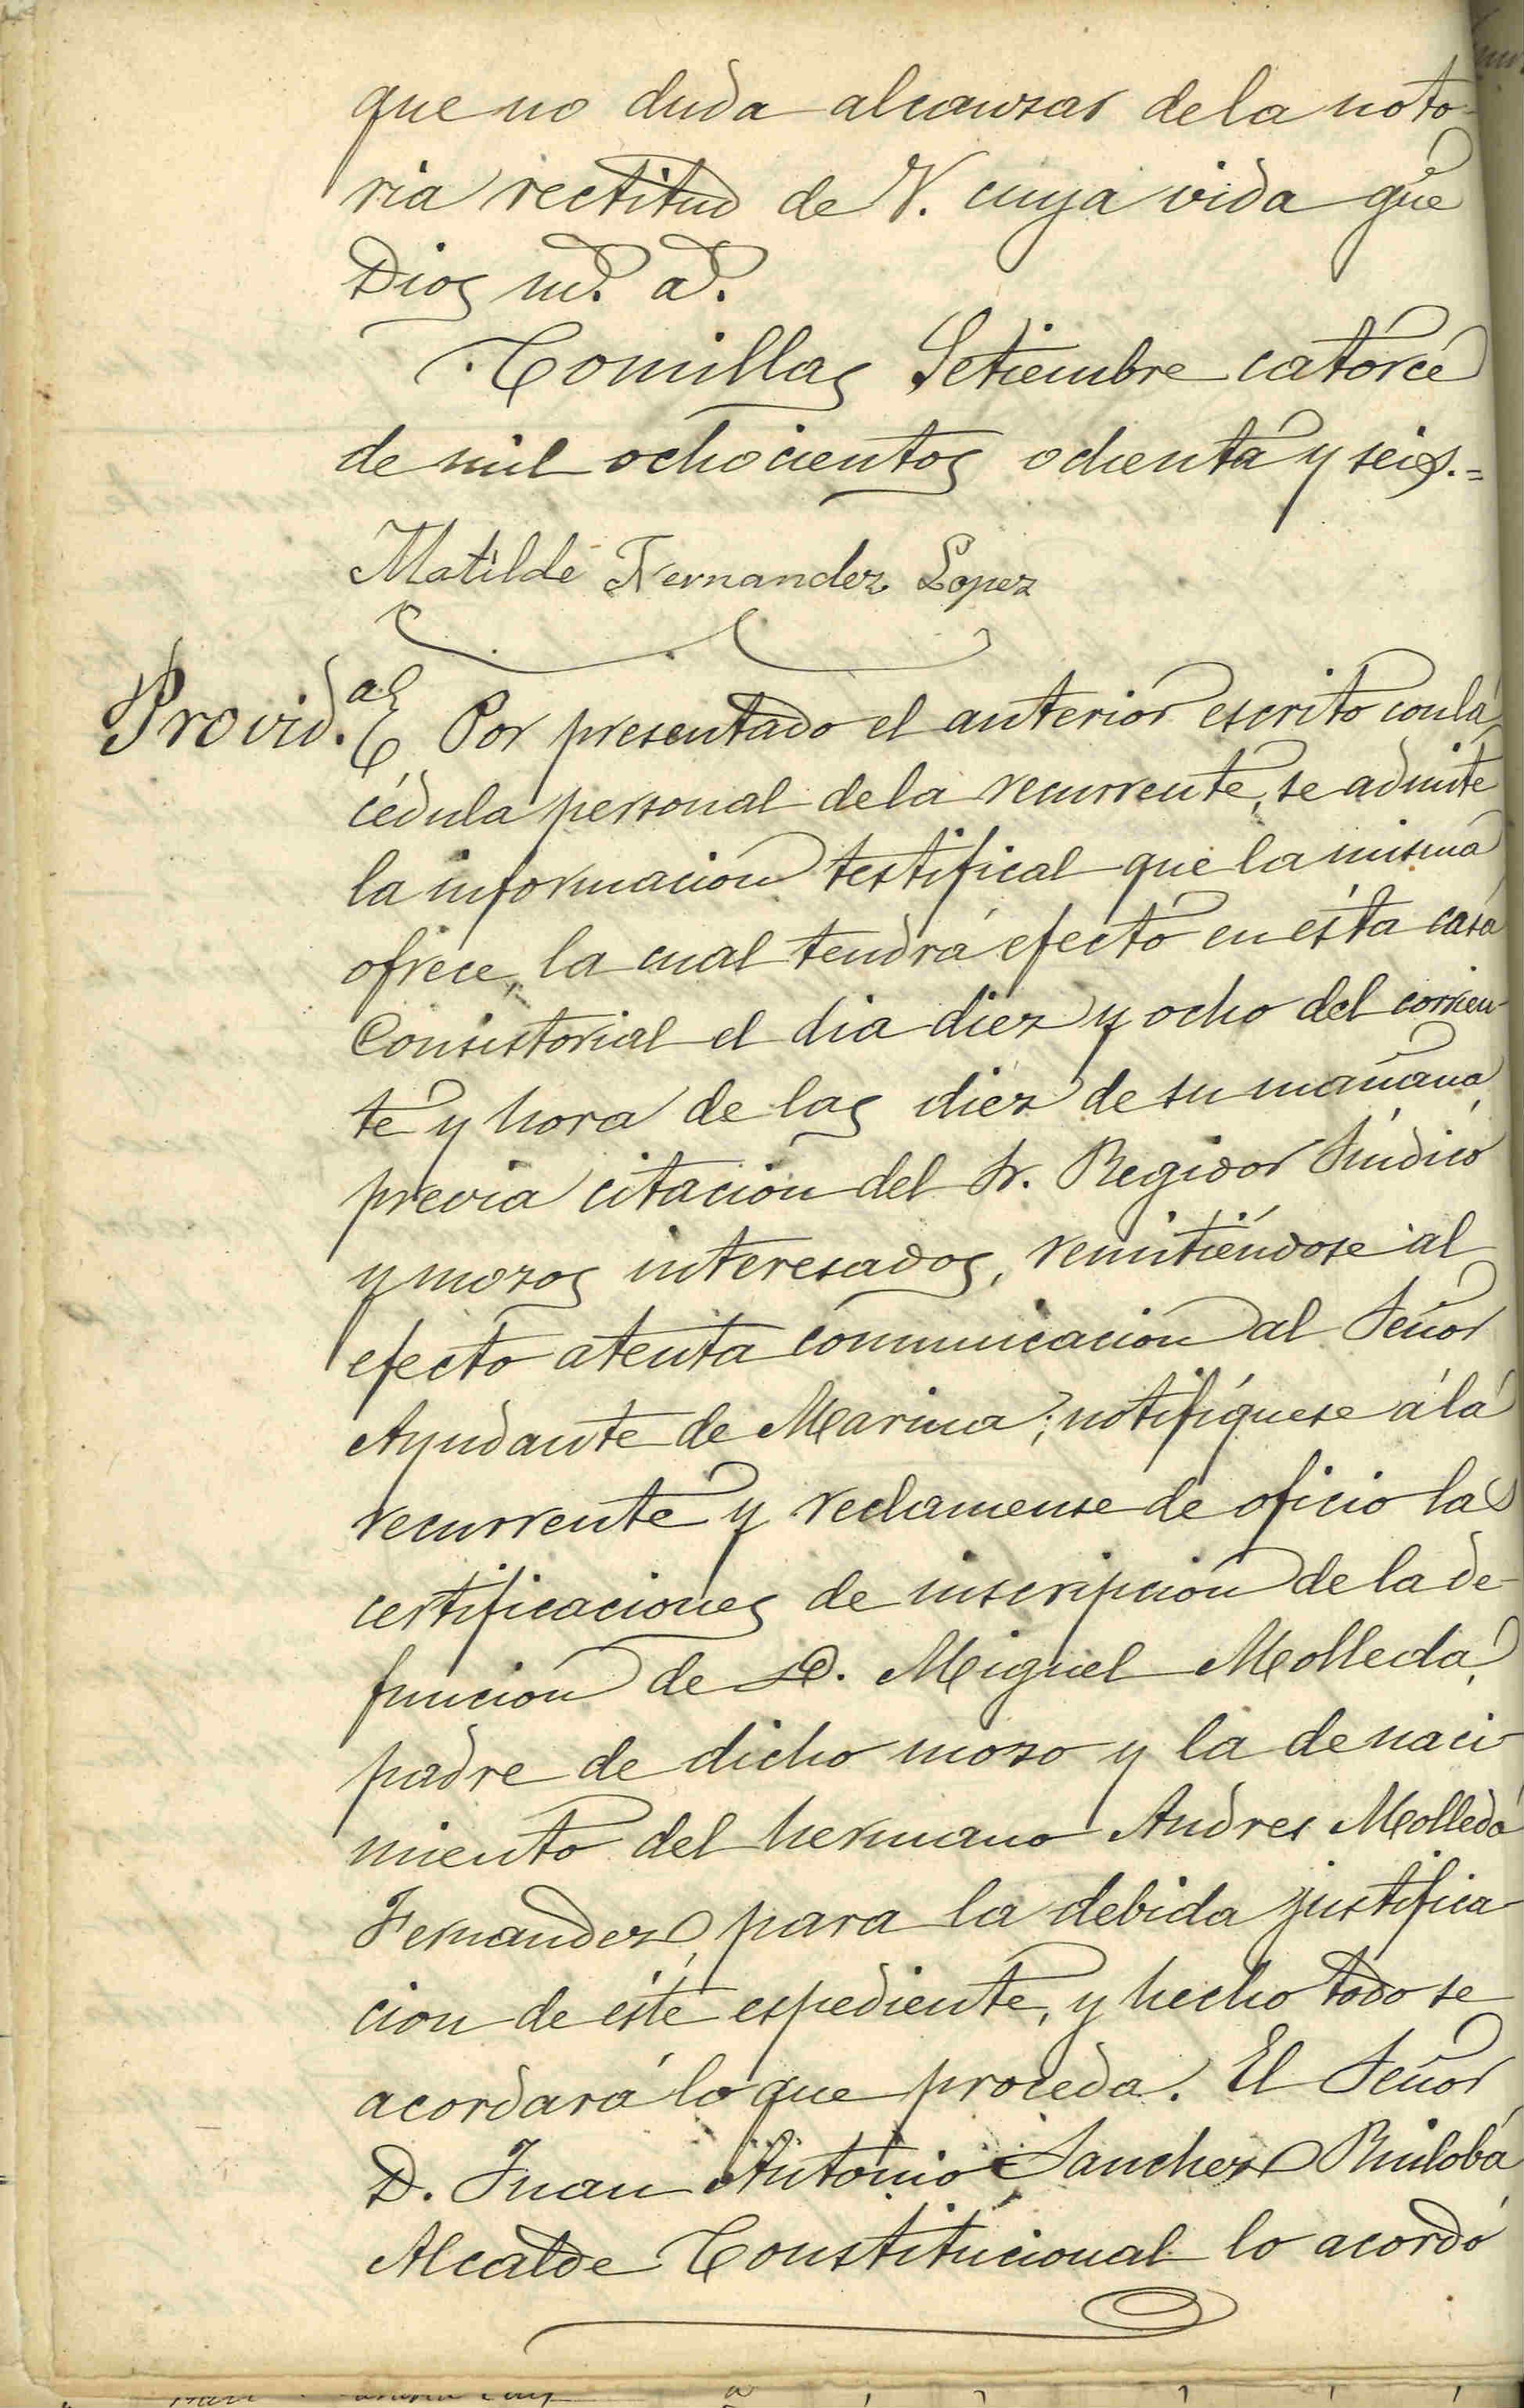 que no duda alcanzar de la noto-
ria rectitud de V. cuya vida gue
Dios m.s a.s
Comillas Setiembre catorce
de mil ochocientos ochenta y seis.=
Matilde Fernandez Lopez
Provid.a Por presentado el anterior escrito con la
cédula personal de la recurrente, se admite
la informacion testifical que la misma
ofrece, la cual tendrá efecto en ésta casa
Consistorial el dia diez y ocho del corrien-
te y hora de las diez de su mañana,
previa citacion del Sr. Regidor Síndico
y mozos interesados, remitiéndose al
efecto atenta comunicacion al Señor
Ayudante de Marina; notifíquese á la
recurrente y reclamense de oficio las
certificaciones de inscripcion de la de-
funcion de D. Miguel Molleda,
padre de dicho mozo y la de naci-
miento del hermano Andres Molleda
Fernandez, para la debida justifica-
cion de éste espediente, y hecho todo se
acordará lo que proceda. El Señor
D. Juan Antonio Sanchez Ruiloba
Alcalde Constitucional lo acordó